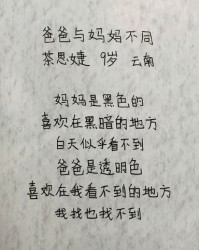 爸爸与妈妈不同
茶思婕 9岁 云南
妈妈是黑色的
喜欢在黑暗的地方
白天似乎看不到
爸爸是透明色
喜欢在我看不到的地方
我找也找不到